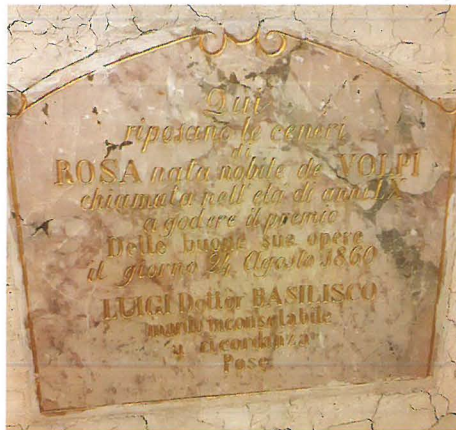 Qui
riposano le ceneri
di
ROSA nata nobile de VOLPI
chiamata nell'età di anni IX
a godere il premio
Delle buone sue opere
il giorno 24 Agosto 1860
LUIGI Dottor BASILISCO
marito inconsolabile
a ricordanza
Pose